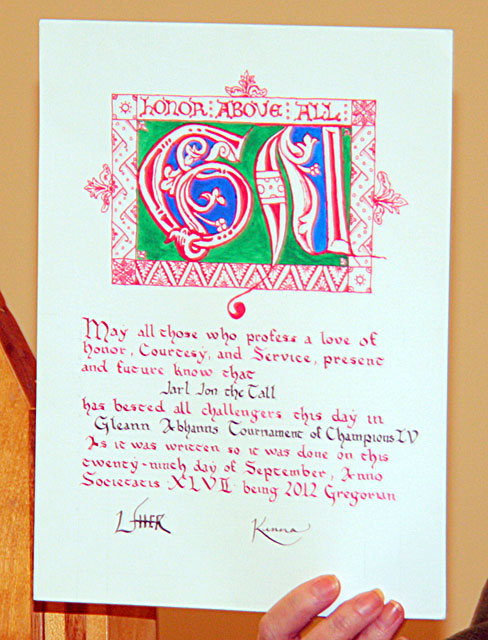 HONOR : ABOVE : ALL
GA
May all those who profess a love of
honor, Courtesy, and Service, present
and future know that
Jarl Jon the Tall
has bested all challengers this day in
Gleann Abhann's Tournament of Champions IV
As it was written so it was done on this
twenty-ninth day of September, Anno
Societatis XLVII being 2012 Gregorian
Kenna